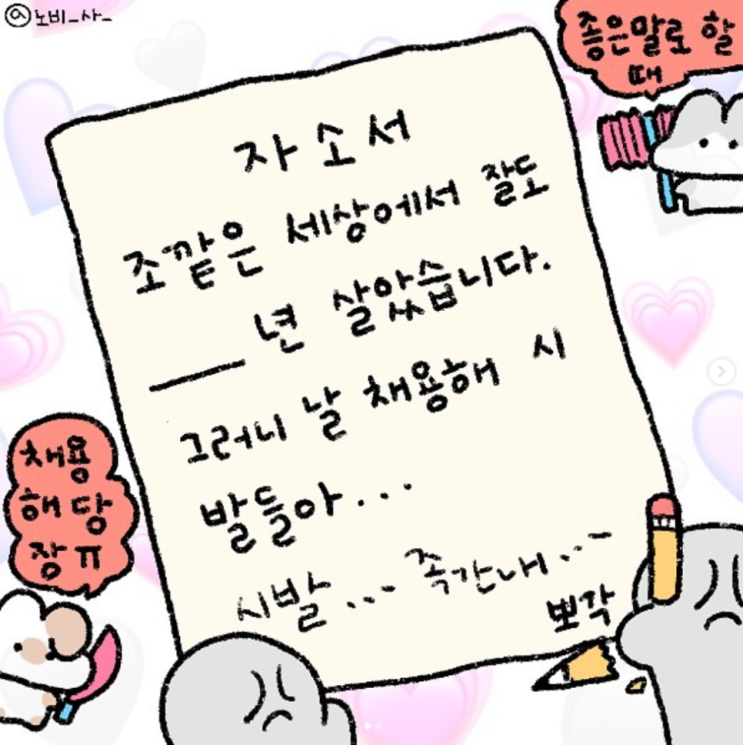 @노비_사_
좋은말로 할
때
자소서
조깥은 세상에서 잘도
____년 살았습니다.
그러니 날 채용해 시
발들아...
시발... 족간내...
뽀각
채용
해 당
장ㅠ